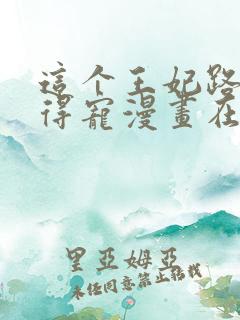 這个王妃路
得寵漫畫在
里亞姆亞
未经同意禁止转载